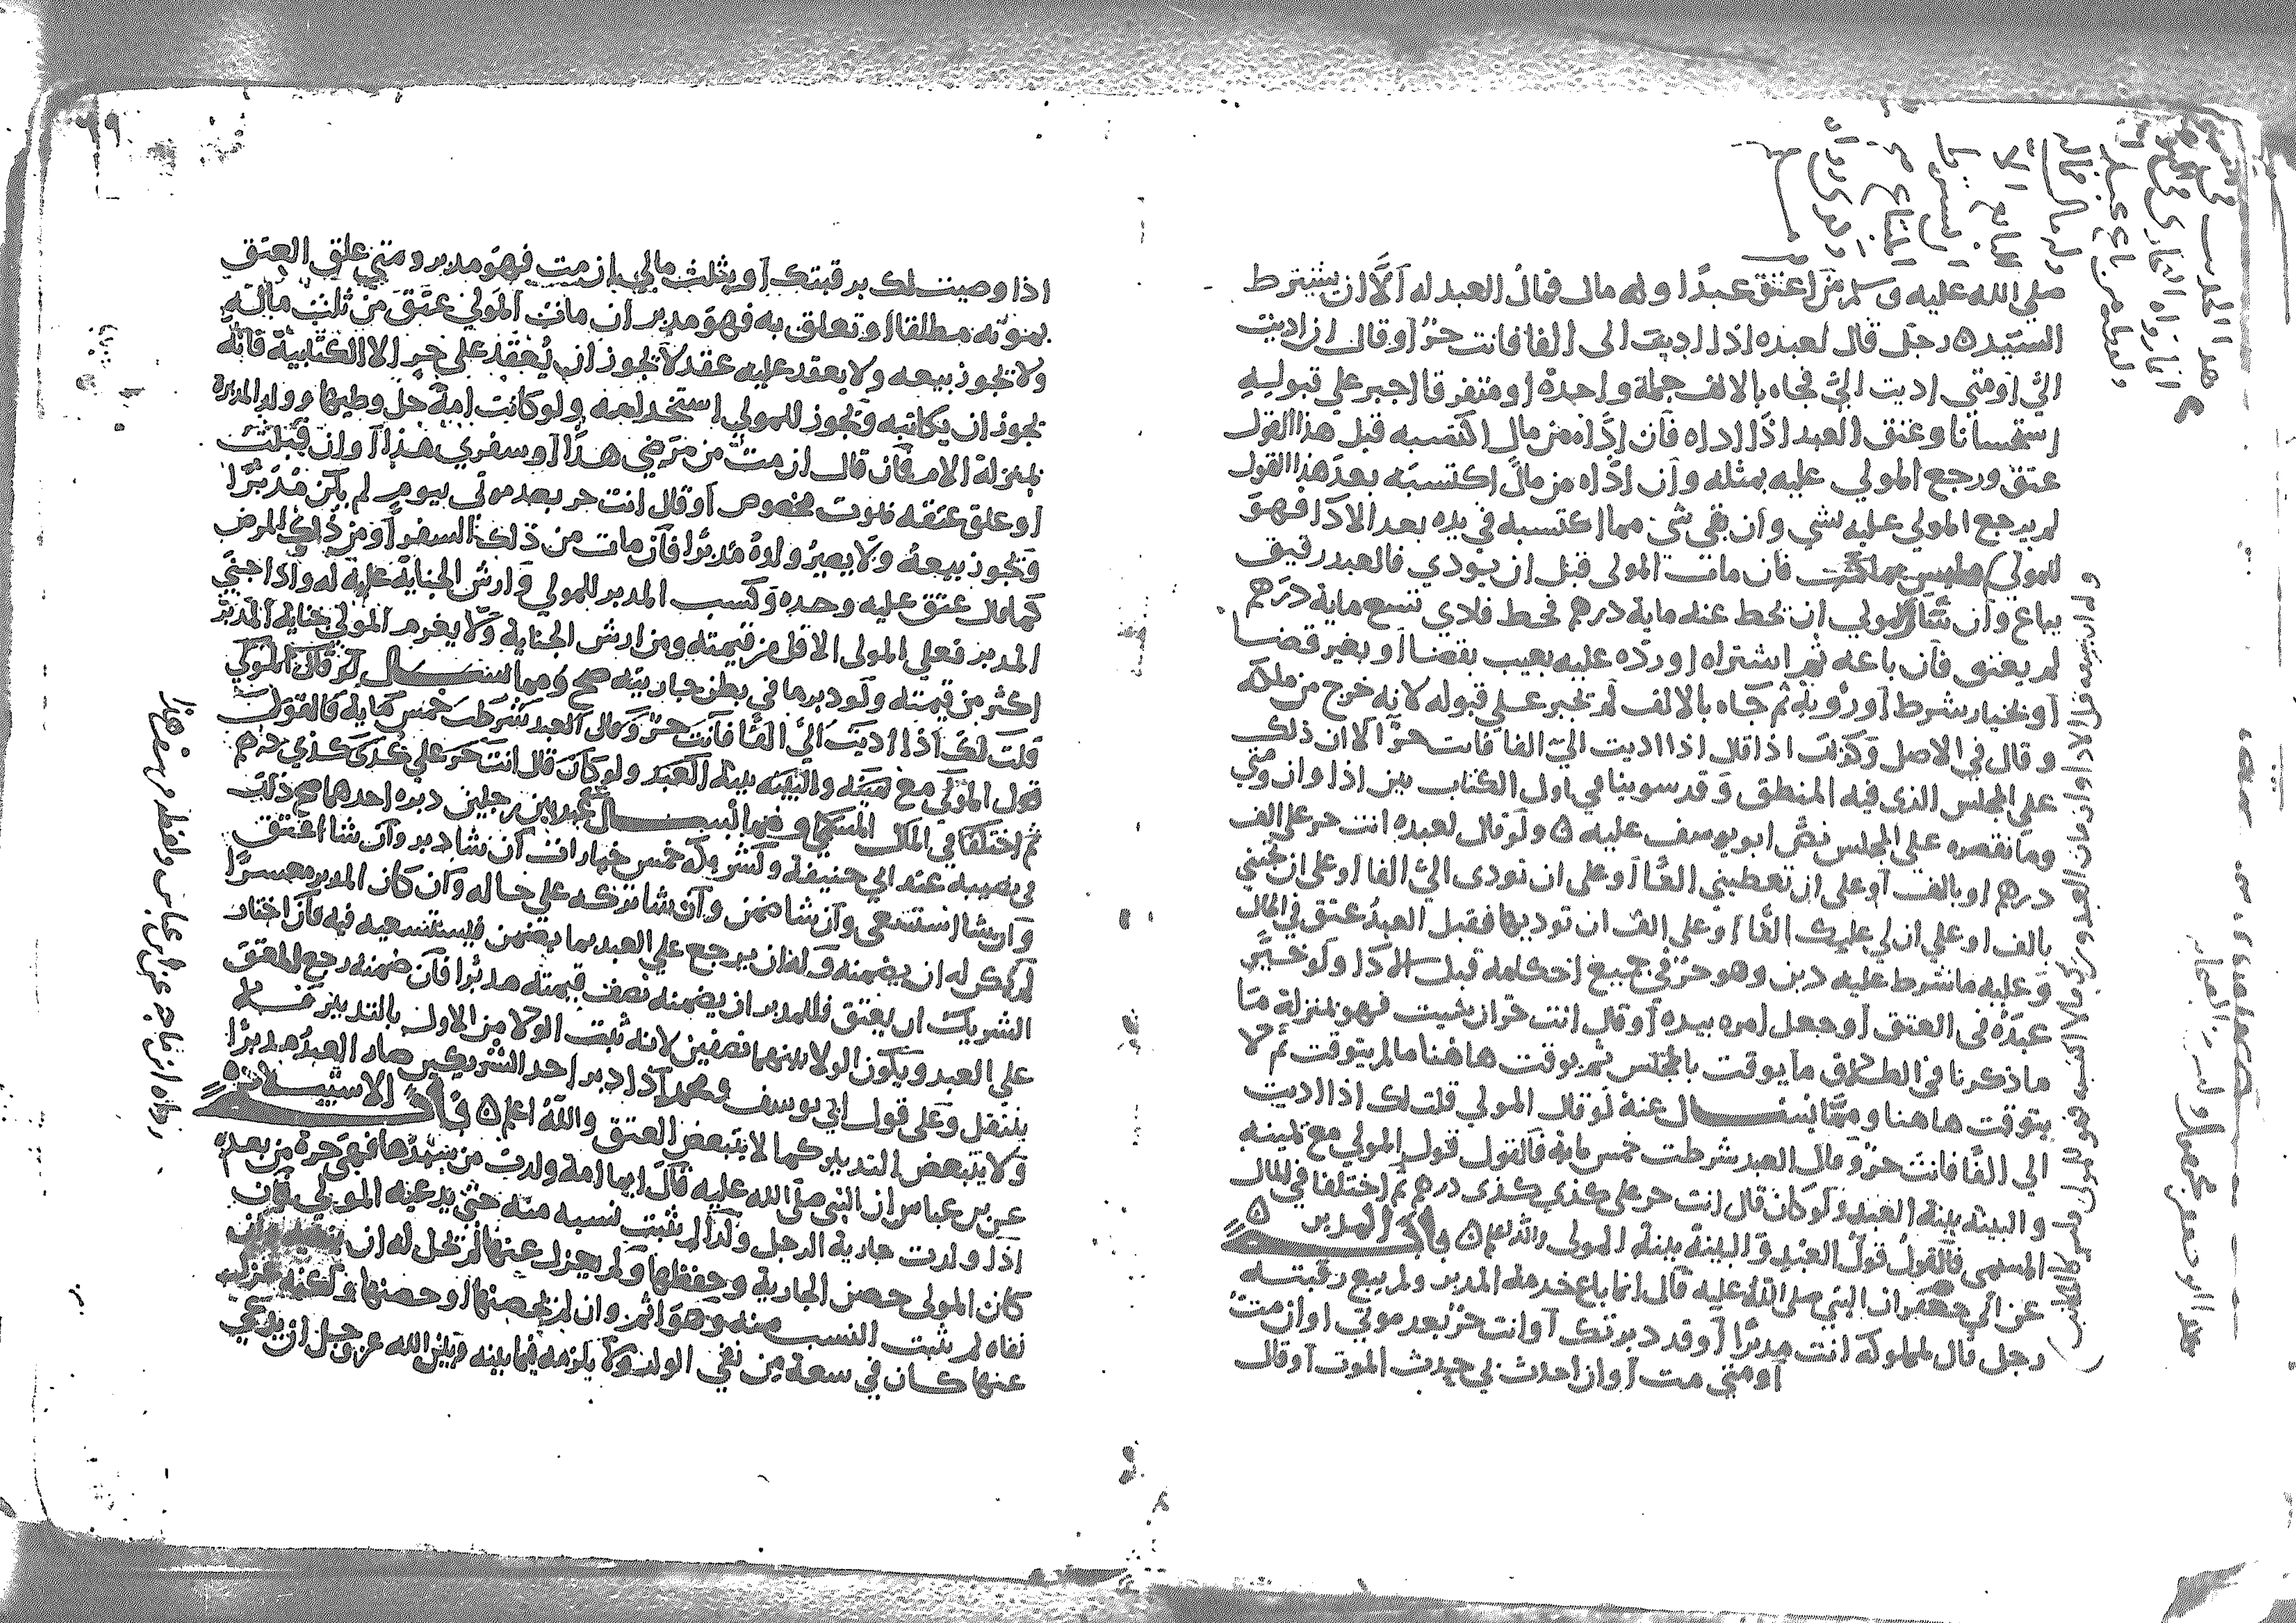 صلي الله عليه وسلم من اعتق عبدًا وله مال فمال العبد له الّا ان يشترط
السيّد ٥ رجل قال لعبده اذا اديت الى الفا فانت حرّ او قال ان اديت
اليّ او متى اديت اليّ فجاه بالالف جملة واحدة او متفرقا اجبر علي قبوله
استحسانا وعتق العبد اذا اداه فان ادّاه من مال اكتسبه قبل هذا القول
عتق ورجع المولي عليه بمثله وان ادّاه من مال اكتسبه بعد هذا القول
لم يرجع المولي عليه بشي وان بقى شى مما اكتسبه في يده بعد الادا فهو
للمولي فان مات المولى قبل ان يودي فالعبد رقيق
يباع وان سال المولي ان يحط عنه ماية درهم فحط فادي تسع ماية درهم
لم يعتق فان باعه ثم اشتراه او ردّه عليه بعيب بقضا او بغير قضا
او بخيار شرط او رؤية ثم جاه بالالف لم يجبر علي قبوله لانه خرج من ملكه
وقال في الاصل وكذلك اذا قال اذا اديت اليّ الفا فانت حرّ الا ان ذلك
على المجلس الذى فيه المنطق وقد سوينا في اول الكتاب بين اذا وان ومتى
وما نقصره على المجلس نصّ ابو يوسف عليه ٥ ولو قال لعبده انت حر على الف
درهم او بالف او على ان تعطيني الفًا او على ان تودى اليّ الفا او على ان تجيني
بالف او على ان لي عليك الفًا او على الف ان توديها فقبل العبد عتق في الحال
وعليه ما شرط عليه دين وهو حرّ في جميع احكامه قبل الادا ولو خيّر
عبده في العتق او جعل امره بيده او قال انت حرّ ان شيت فهو بمنزلة ما
ما ذكرنا في الطلاق ما يوقت بالمجلس ثم يوقت هاهنا ما لم يتوقت ثم لا
يتوقت هاهنا ومما يسال عنه لو قال المولي قلت لك اذا اديت
الي الفًا فانت حرّ وقال العبد شرطت خمس ماية فالقول قول المولي مع يمينه
والبينه بينة العبد ولو كان قال انت حر على كذى كذى درهم ثم اختلفا في المال
المسمى فالقول قول العبد والبينة بينة المولى والله اعلم ٥ باب المدبر ٥
عن ابي جعفر ان النبي صلى الله عليه قال انما باع خدمة المدبر ولم يبع رقبته
رجل قال لمملوكه انت مدبّرًا او قد دبرتك او انت حرّ بعد موتي او ان متّ
او متى مت او ان احدث بي حدث الموت او قال
اذا وصيت لك برقبتك او بثلث مالي ان مت فهو مدبر ومتي علق العتق
بموته مطلقا او تعلق به فهو مدبر ان مات المولي عتق من ثلث ماله
ولا يجوز بيعه ولا يعقد عليه عقد لا يجوز ان يعقد علي حر الا الكتابية فانه
يجوز ان يكاتبه ويجوز للمولي استخدامه ولو كانت امة حل وطيها وولد المدبرة
بمنزلة الام فان قال ان مت من مرضي هذا او سفري هذا او ان قتلت
او علق عتقه بموت مخصوص او قال انت حر بعد موتي بيوم لم يكن مدبرًا
ويجوز بيعه ولا يصير ولده مدبرًا فان مات من ذلك السفر او من ذلك المرض
كما قال عتق عليه وحده وكسب المدبر للمولي وارش الجناية عليه له واذا جنى
المدبر فعلي المولى الاقل من قيمته ومن ارش الجناية ولا يغرم المولي بجناية المدبر
اكثر من قيمته ولو دبر ما في بطن جاريته صح ومما يسال لو قال المولي
قلت لك اذا اديت اليّ الفًا فانت حرّ وقال العبد شرطت خمس ماية فالقول
قول المولي مع يمينه والبينه بينة العبد ولو كان قال انت حر علي كذى كذى درهم
ثم اختلفا في المال المسمى ومما يسال عبد بين رجلين دبره احدهما صح ذلك
في نصيبه عند ابي حنيفة ولشريكه خمس خيارات ان شا دبر وان شا اعتق
وان شا استسعى وان شا ضمن وان شا تركه علي حاله وان كان المدبر معسرًا
لم يكن له ان يضمنه وله ان يرجع علي العبد بما يضمن فيستسعيه فيه فان اختار
الشريك ان يعتق فللمدبر ان يضمنه نصف قيمته مدبرًا فان ضمنه رجع المعتق
علي العبد ويكون الولا بينهما نصفين لانه ثبت الولا من الاول بالتدبير فلا
ينتقل وعلى قول ابي يوسف ومحمد اذا دبر احد الشريكين صار العبد مدبرًا
ولا يتبعض التدبير كما لا يتبعض العتق والله اعلم ٥ باب الاستيلاد ٥
عن بن عباس ان النبي صلى الله عليه قال ايما امة ولدت من سيدها فهي حرة من بعده
اذا ولدت جارية الرجل ولدًا لم يثبت نسبه منه حتى يدعيه المولي فان
كان المولى حصن الجارية وحفظها ولم يعزل عنها لم يحل له ان
نفاه لم يثبت النسب منه وهو اثم وان لم يحصنها او حصنها ولكنه عزل
عنها كان في سعة من نفي الولد ولا يلزمه فيما بينه وبين الله عز وجل ان يدعى
رواه ابن ماجه عن ابن عباس